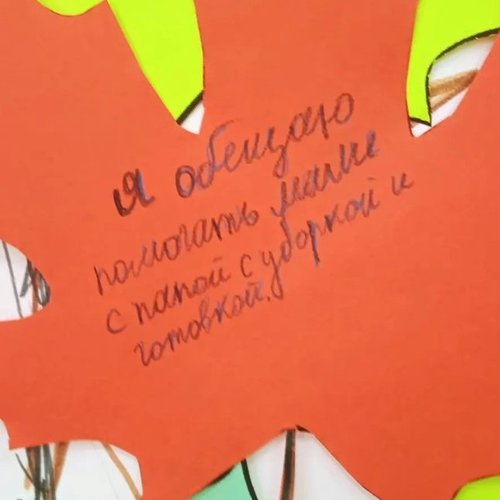 Я обещаю
помогать маме
с папой с уборкой и
готовкой.